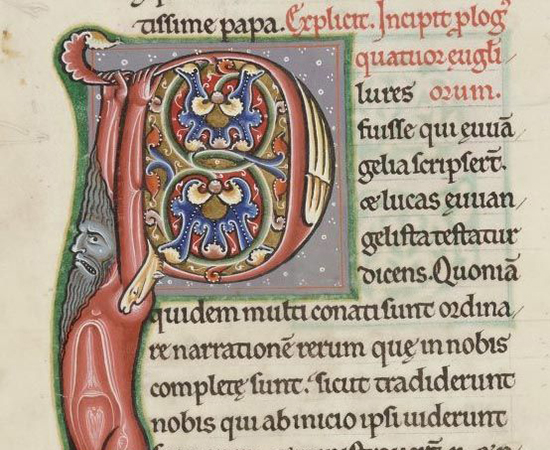 tissime papa. Explicit. Incipit ꝓlog᷒
quatuor eũgli
P lures orum.
fuisse qui euuã
gelia scripsert̃.
& lucas euuan
gelista testatur
dicens. Quoniã
quidem multi conati sunt ordina
re narrationẽ rerum quę in nobis
completę sunt. sicut tradiderunt
nobis qui ab inicio ipsi uiderunt